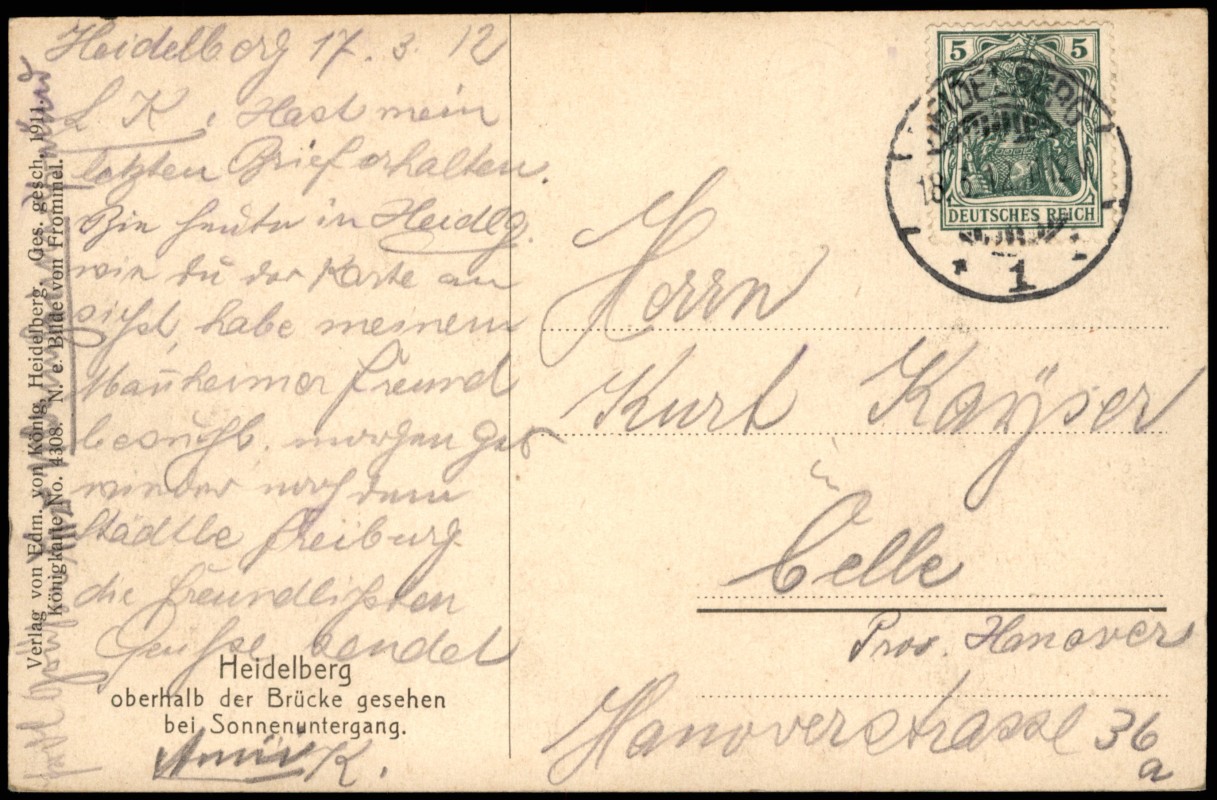 Heidelberg 17. 3. 12
L K, Hast mein
letzten Brief erhalten.
Bin heute in Heidlg.
wie du der Karte an
sichst, habe meinem
Manheimer Freund
besucht. morgen get
wieder nach dem
Städtle Freiburg
die freundlichsten
Grüsse sendet
K.
Heidelberg
oberhalb der Brücke gesehen
bei Sonnenuntergang.
Verlag von Edm. von König, Heidelberg, Ges. gesch. 1911.
Königkarte No. 4308. N. e. Bilde von Frommel.
5 5
DEUTSCHES REICH
HEIDELBERG
1
Herrn
Kurt Kayser
in
Celle
Prov. Hanover
Hanoverstrasse 36
a